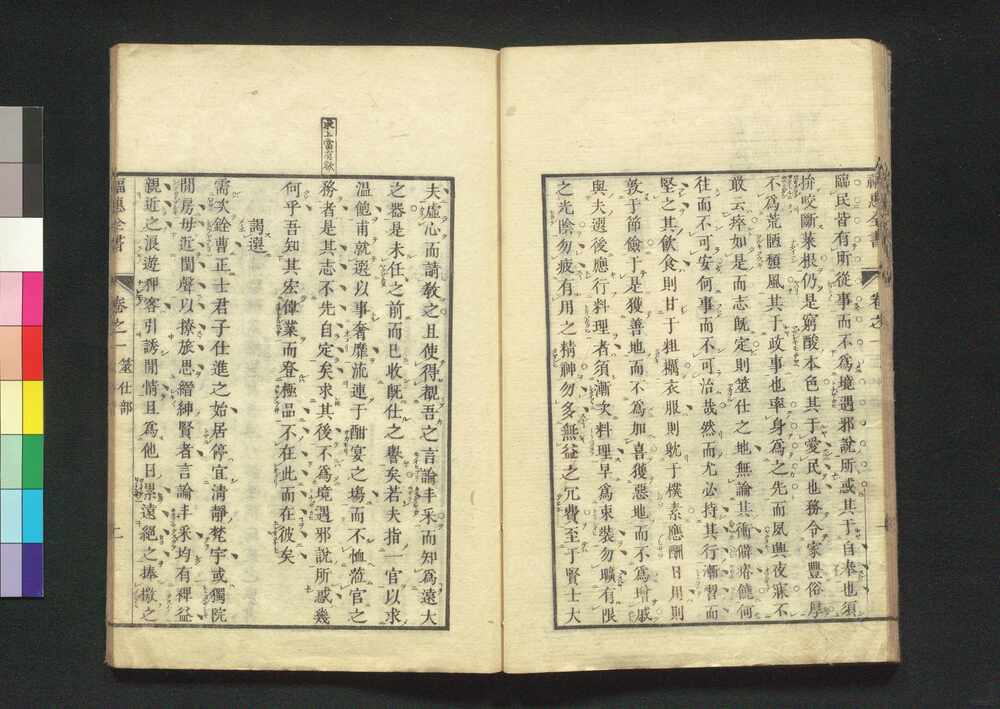 福惠全書 卷之一
臨民皆有所從事而不爲境遇邪說所惑其于自奉也須
拚咬斷菜根仍是窮酸本色其于愛民也務令家豐俗厚
不爲荒陋頽風其于政事也率身爲之先而夙興夜寐不
敢云瘁如是而志既定則筮仕之地無論其衝僻瘠饒何
往而不可安何事而不可治哉然而尤必持其行漸習而
堅之其飲食則甘于粗糲衣服則躭于樸素應酬日用則
敦于節儉于是獲善地而不爲加喜獲惡地而不爲增戚
與夫選後應行料理者須漸次料理早爲束裝勿曠有限
之光陰勿疲有用之精神勿多無益之冗費至于賢士大
夫虛心而請教之且使得覩吾之言論丰采而知爲遠大
之器是未任之前而已收既仕之譽矣若夫指一官以求
溫飽甫就選以事奢靡流連于酣宴之場而不恤蒞官之
務者是其志不先自定矣求其後不爲境遇邪說所惑幾
何乎吾知其宏偉業而登極品不在此而在彼矣
謁選
需次銓曹正士君子仕進之始居停宜清靜梵宇或獨院
閒房毋近閭聲以撩旅思縉紳賢者言論丰采均有裨益
親近之浪遊狎客引誘閒情且爲他日累遠絕之捧檄之
福惠全書 卷之一 筮仕部
上當有欲